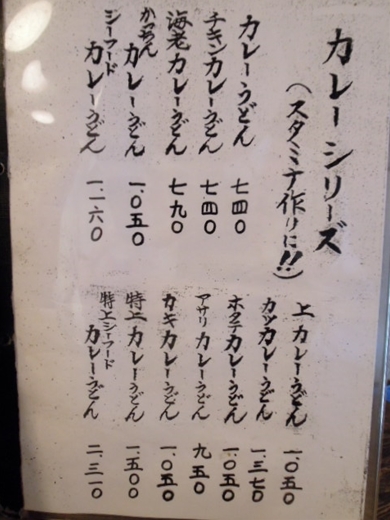 カレーシリーズ
(スタミナ作りに!!)
カレーうどん 七四〇
チキンカレーうどん 七四〇
海老カレーうどん 七九〇
かっちんカレーうどん 一、〇五〇
シーフードカレーうどん 一、一六〇
上カレーうどん 一、〇五〇
カツカレーうどん 一、三七〇
ホタテカレーうどん 一、〇五〇
アサリカレーうどん 九五〇
カキカレーうどん 一、〇五〇
特上カレーうどん 一、五〇〇
特上シーフードカレーうどん 二、三一〇